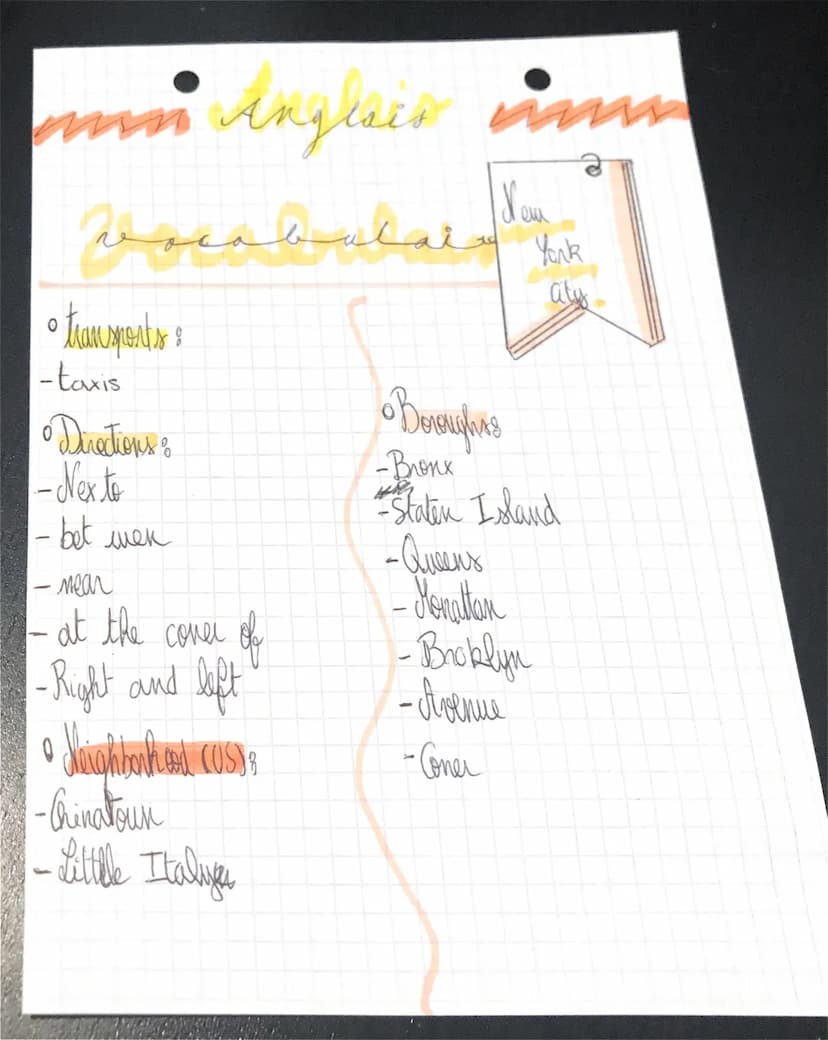 Anglais
vocabulaire
New
York
City
Transports:
- taxis
Directions:
- Nex to
- bet wen
- near
- at the coner of
- Right and left
Neighborhood (US):
- Chinatown
- Little Italy
Boroughs:
- Bronx
- Staten Island
- Queens
- Monattan
- Broklyn
- Avenue
- Coner